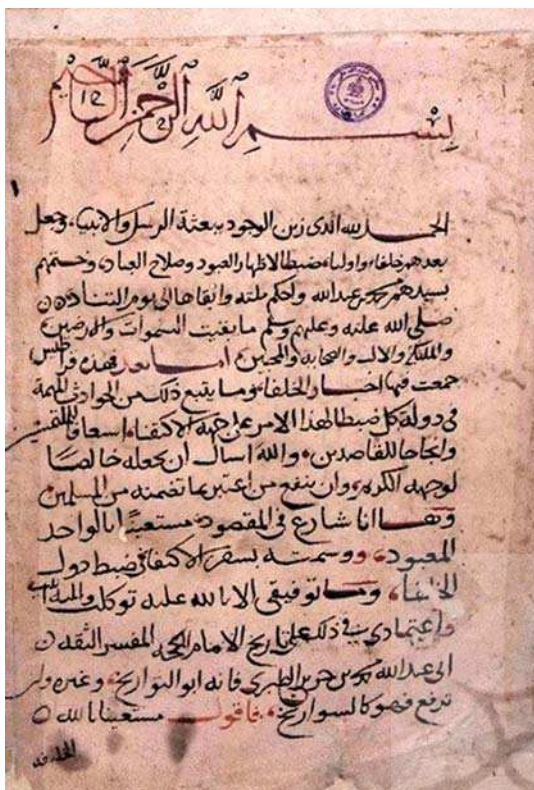 بسم الله الرحمن الرحيم
الحمد لله الذى زين الوجود ببعثة الرسل والانبياء وجعل
بعدهم خلفاء واولياء ضبطا لاظهار العبود وصلاح العباد وختمهم
بسيدهم محمد بن عبدالله واحكم ملته وابقاها الى يوم التناد
صلى الله عليه وعليهم وسلم ما بقيت السموات والارضين
والملائكة والال والصحابة والمحبين اما بعد فهذه قراطيس
جمعت فيها اخبار الخلفاء وما يتبع ذلك من الحوادث المهمة
فى دولة كل ضبطا لهذا الامر على جهة الاكتفاء اسعافا
وانجاحا للقاصدين والله اسال ان يجعله خالصا
لوجهه الكريم وان ينفع من اعتبر بما تضمنه من المسلمين
وها انا شارع فى المقصود مستعينا بالواحد
المعبود ووسمته بسفر الاكتفا فى ضبط دول
الخلفا وما توفيقى الا بالله عليه توكلت واليه انيب
واعتمادى فى ذلك على تاريخ الامام الحجه المفسر الثقه
ابى عبدالله محمد بن جرير الطبرى فانه ابو التواريخ وغيره وان
ترفع فهو كالسواريخ فاقول مستعينا بالله
الخليفه